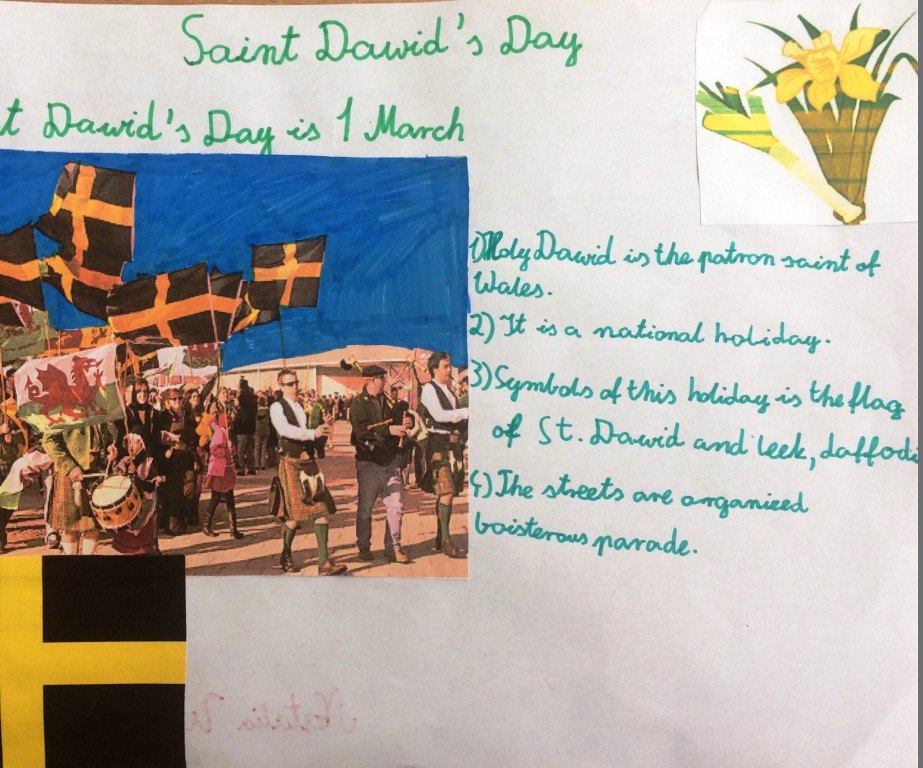 Saint Dawid's Day
t Dawid's Day is 1 March
1) Holy Dawid is the patron saint of
Wales.
2) It is a national holiday.
3) Symbols of this holiday is the flag
of St. Dawid and leek, daffod
4) The streets are organized
boisterous parade.
Natalia